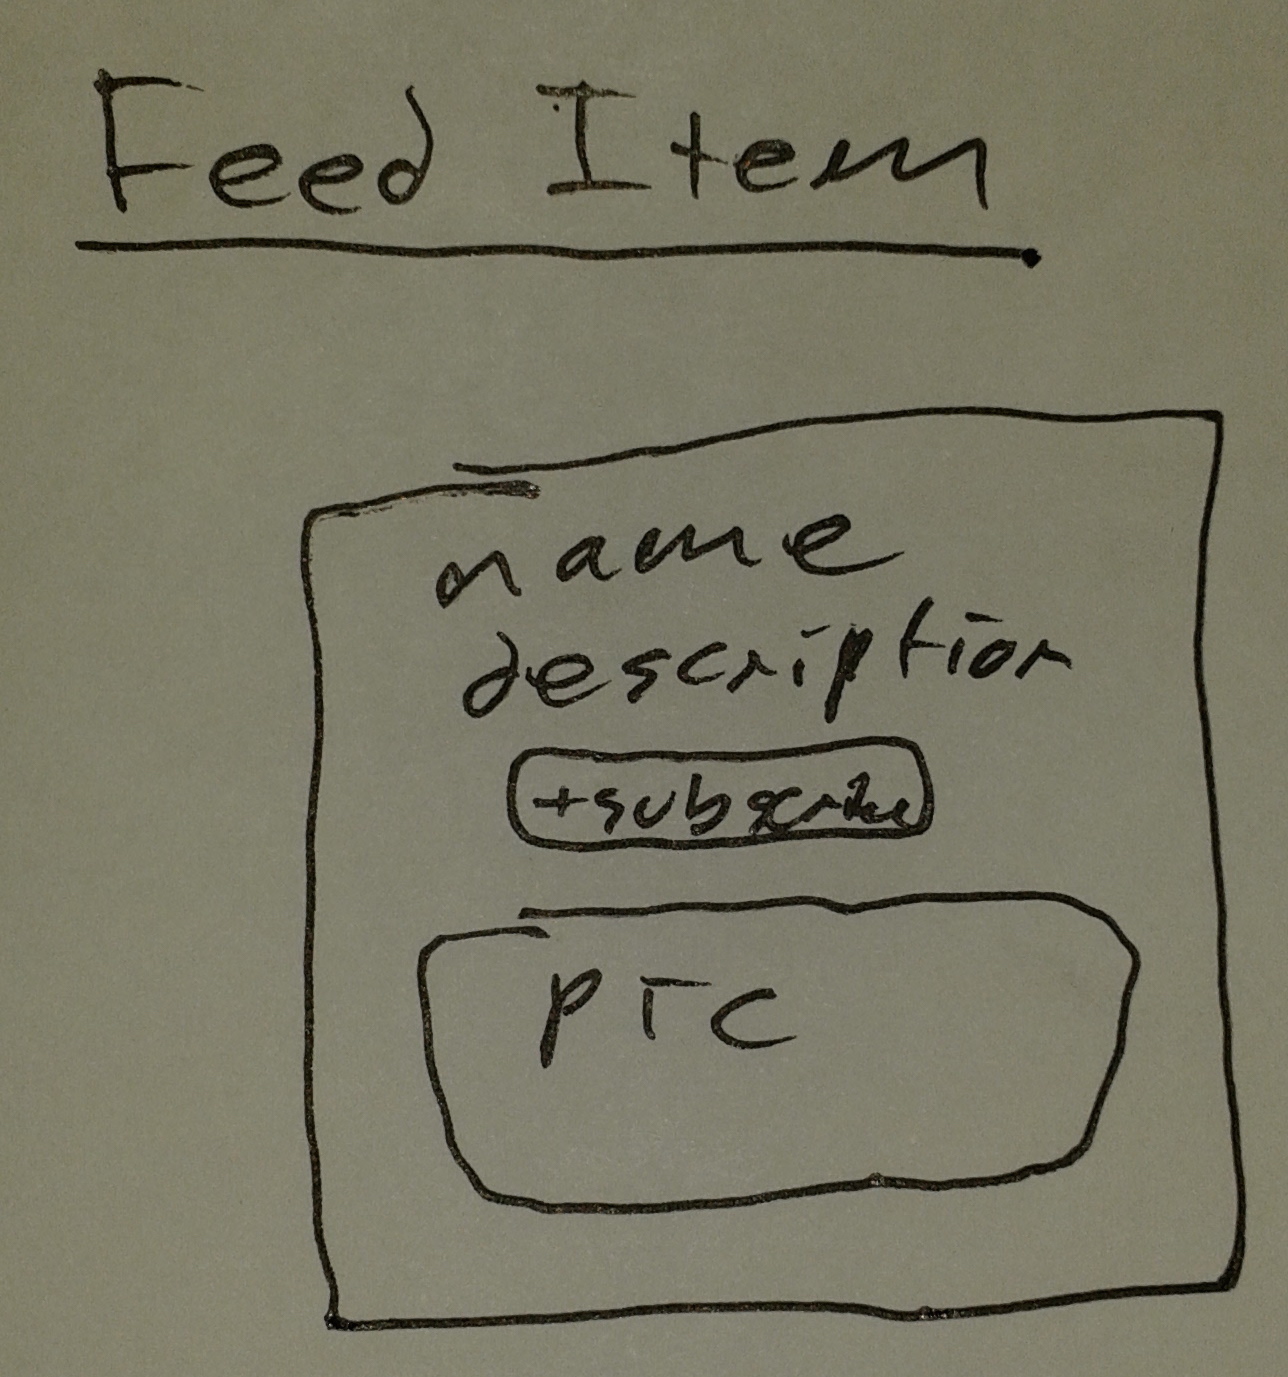 Feed Item
name
description
+subscribe
PIC